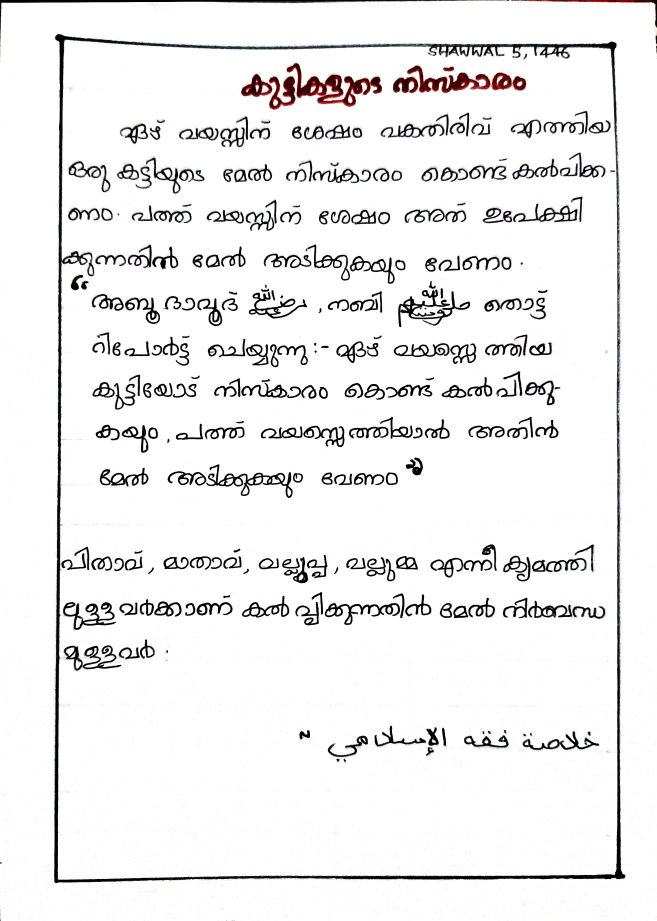 SHAWWAL 5, 1446
കുട്ടികളുടെ നിസ്കാരം
ഏഴ് വയസ്സിന് ശേഷം വകതിരിവ് എത്തിയ
ഒരു കട്ടിയുടെ മേൽ നിസ്കാരം കൊണ്ട് കൽപിക്ക-
ണം. പത്ത് വയസ്സിന് ശേഷം അത് ഉപേക്ഷി
ക്കുന്നതിൻ മേൽ അടിക്കുകയും വേണം.
“അബൂ ദാവൂദ് رضي الله عنه, നബി صلى الله عليه وسلم തൊട്ട്
റിപോർട്ട് ചെയ്യുന്നു:- ഏഴ് വയസ്സെത്തിയ
കുട്ടിയോട് നിസ്കാരം കൊണ്ട് കൽപിക്കു-
കയും, പത്ത് വയസ്സെത്തിയാൽ അതിൻ
മേൽ അടിക്കുകയും വേണം”
പിതാവ്, മാതാവ്, വല്ല്യുപ്പ, വല്ല്യുമ്മ എന്നീ ക്രമത്തി
ലുള്ളവർക്കാണ് കൽപ്പിക്കുന്നതിൻ മേൽ നിർബന്ധ
മുള്ളവർ.
خلاصة فقه الإسلامي ~